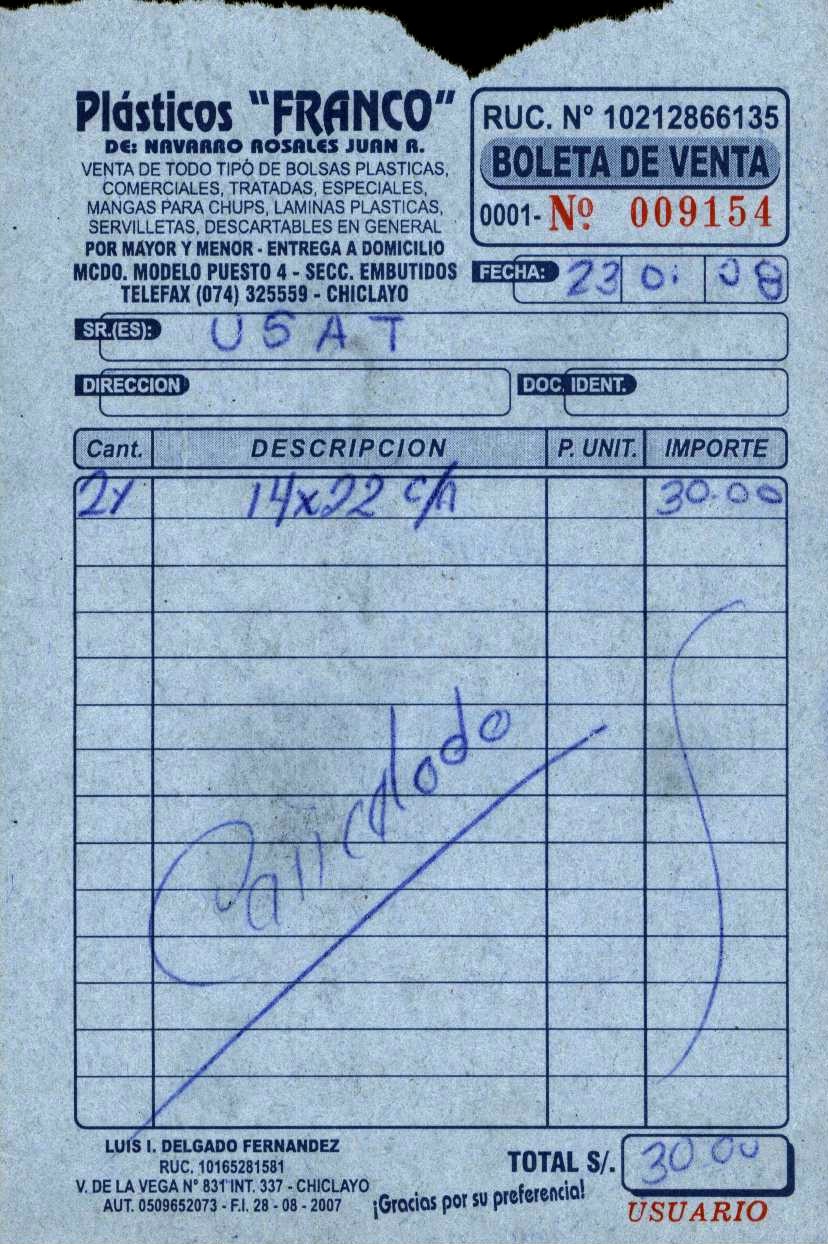 Plásticos "FRANCO"
DE: NAVARRO ROSALES JUAN R.
VENTA DE TODO TIPÓ DE BOLSAS PLASTICAS,
COMERCIALES, TRATADAS, ESPECIALES,
MANGAS PARA CHUPS, LAMINAS PLASTICAS,
SERVILLETAS, DESCARTABLES EN GENERAL
POR MAYOR Y MENOR - ENTREGA A DOMICILIO
MCDO. MODELO PUESTO 4 - SECC. EMBUTIDOS
TELEFAX (074) 325559 - CHICLAYO
RUC. N° 10212866135
BOLETA DE VENTA
0001- Nº 009154
FECHA: 23 01 08
SR.(ES): USAT
DIRECCION DOC. IDENT.
Cant. DESCRIPCION P. UNIT. IMPORTE
14x22 c/A 30.00
Cancelado
LUIS I. DELGADO FERNANDEZ
RUC. 10165281581
V. DE LA VEGA N° 831 INT. 337 - CHICLAYO
AUT. 0509652073 - F.I. 28 - 08 - 2007
¡Gracias por su preferencia!
TOTAL S/. 30 00
USUARIO